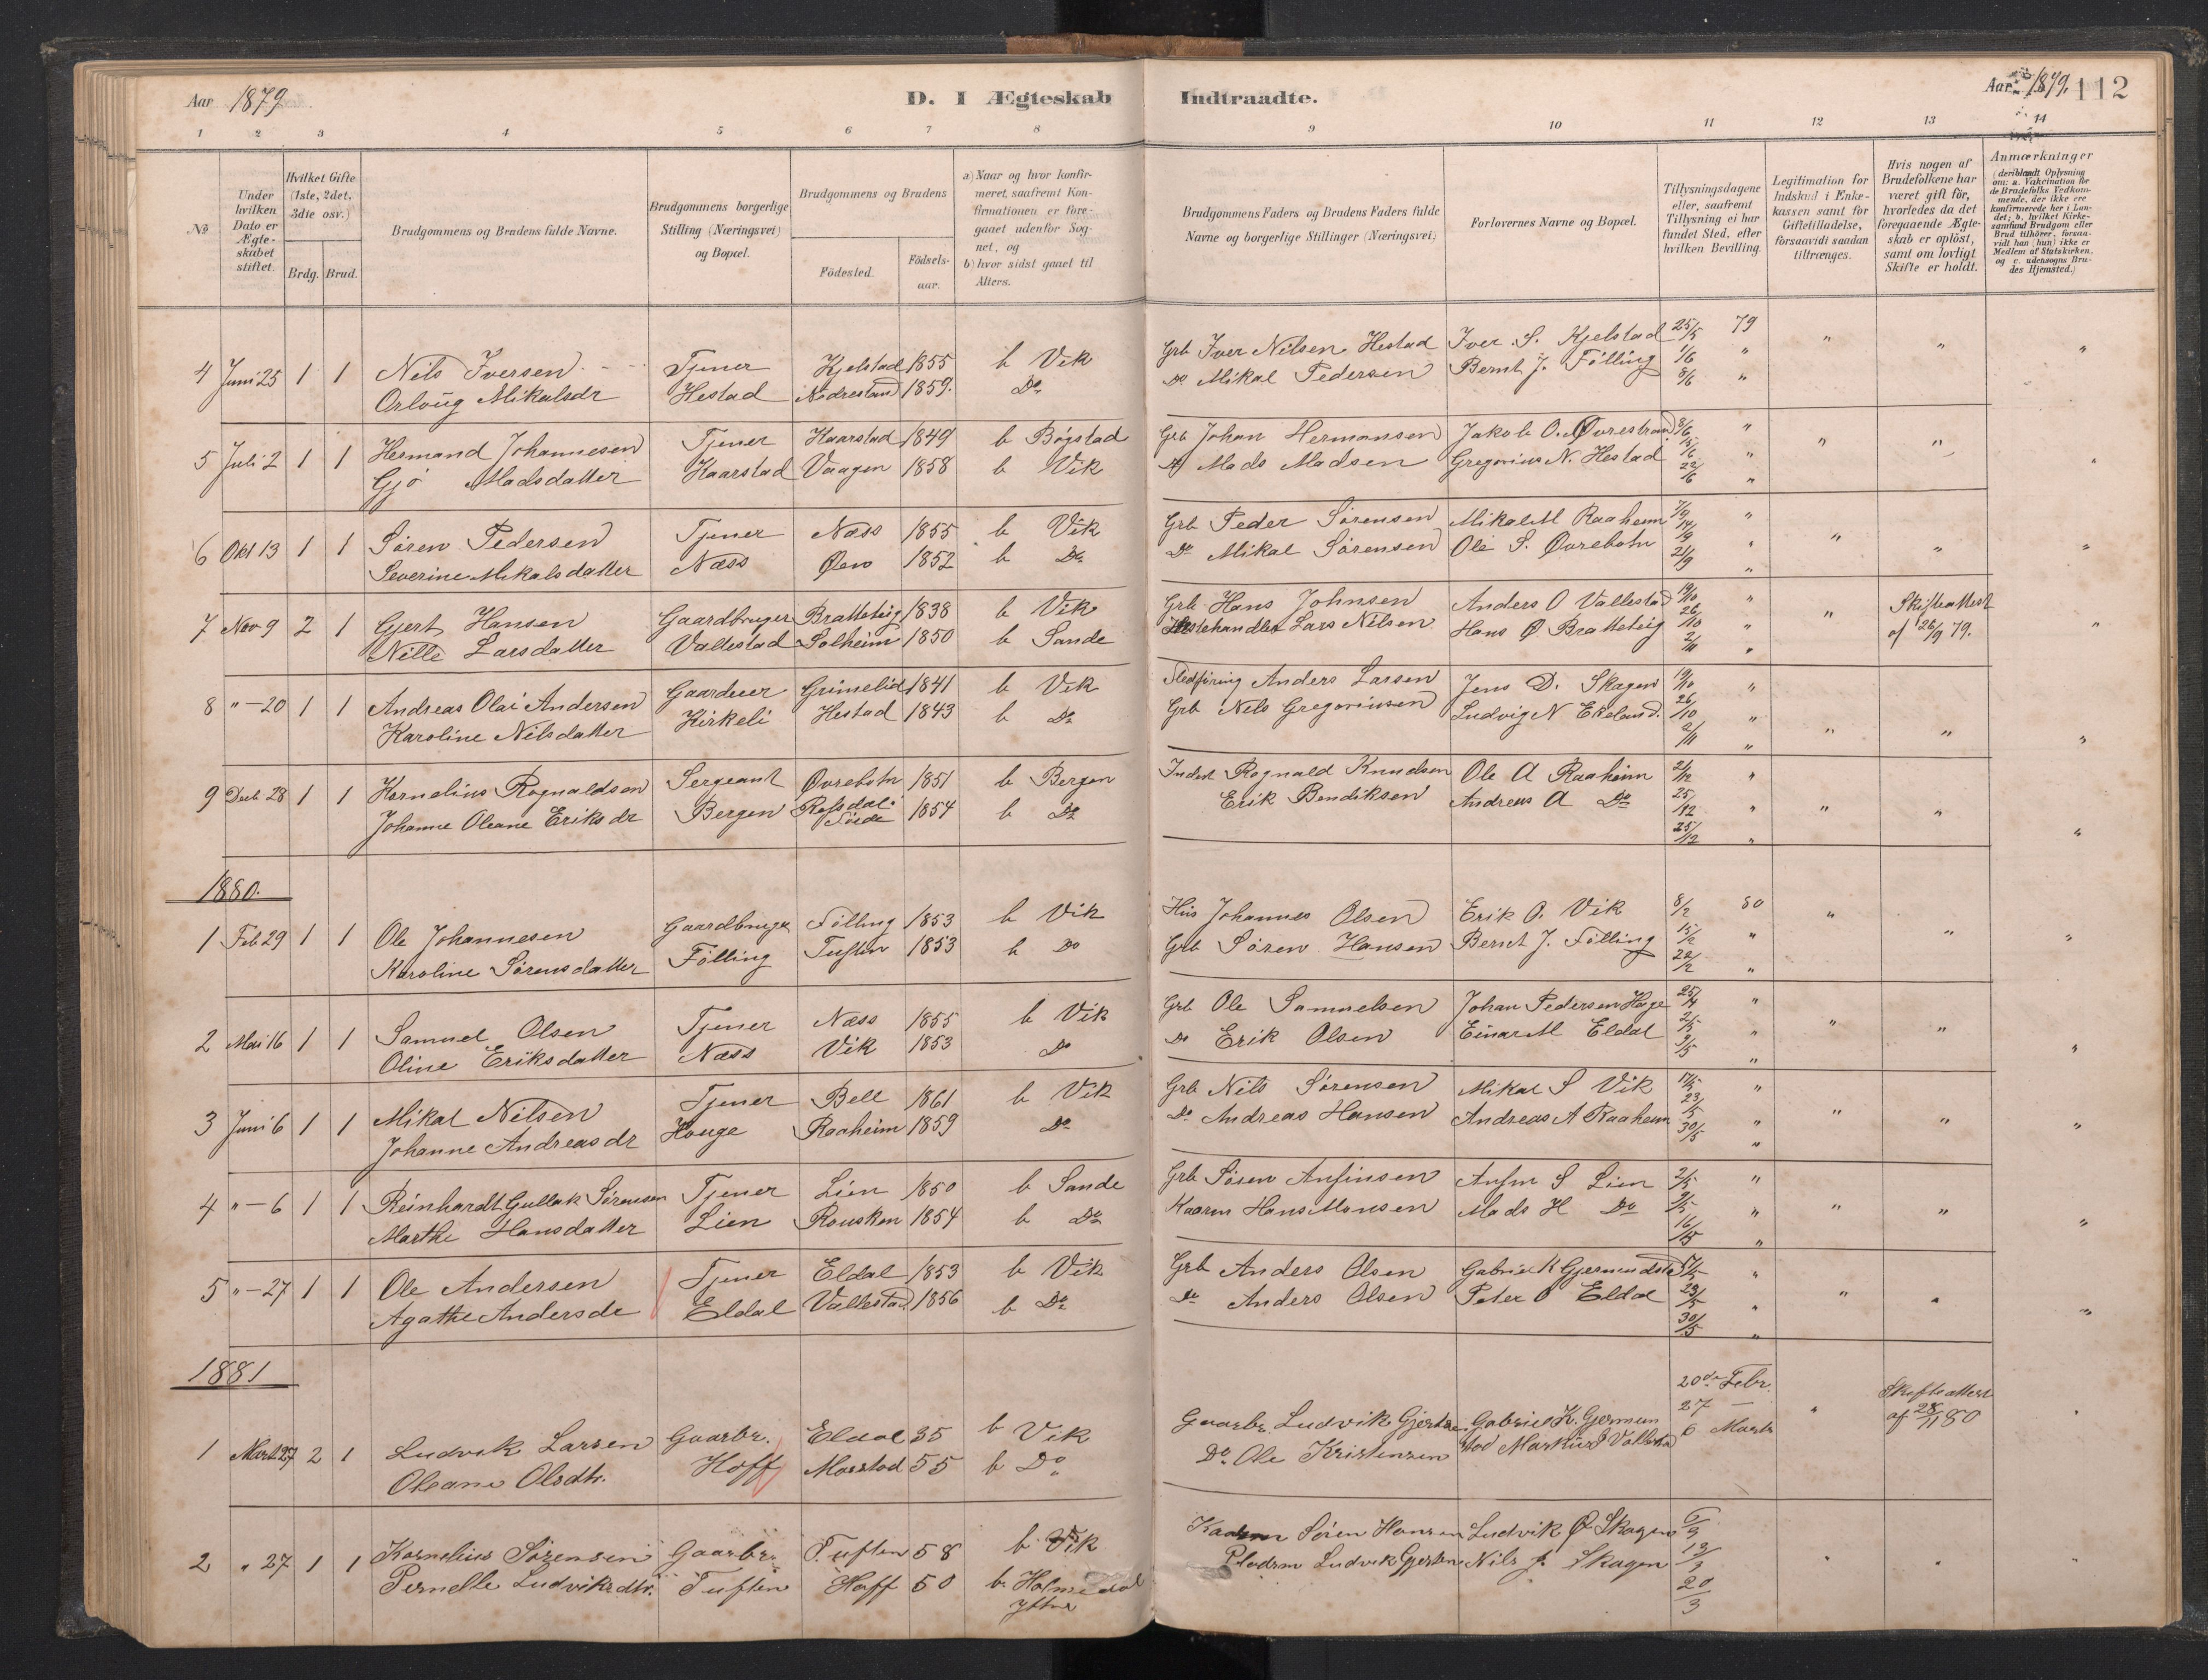 Aar 1879
D. I Ægteskab Indtraadte.
Aar 1879. 112
1 2 3 4 5 6 7 8 9 10 11 12 13 14
№
Under hvilken Dato er Ægteskabet stiftet.
Hvilket Gifte (1ste, 2det, 3die osv.)
Brdg. Brud.
Brudgommens og Brudens fulde Navne.
Brudgommens borgerlige Stilling (Næringsvei) og Bopæl.
Brudgommens og Brudens
Födested.
Födselsaar.
a) Naar og hvor konfirmeret, saafremt Konfirmationen er foregaaet udenfor Sognet, og
b) hvor sidst gaaet til Alters.
Brudgommens Faders og Brudens Faders fulde Navne og borgerlige Stillinger (Næringsvei)
Forlovernes Navne og Bopæl.
Tillysningsdagene eller, saafremt Tillysning ei har fundet Sted, efter hvilken Bevilling.
Legitimation for Indskud i Enkekassen samt for Giftetilladelse, forsaavidt saadan tiltrænges.
Hvis nogen af Brudefolkene har været gift för, hvorledes da det foregaaende Ægteskab er oplöst, samt om lovligt Skifte er holdt.
Anmærkninger (deriblandt Oplysning om: a. Vakcination for de Brudefolks Vedkommende, der ikke ere konfirmerede her i Landet; b. hvilket Kirkesamfund Brudgom eller Brud tilhörer, forsaavidt han (hun) ikke er Medlem af Statskirken, og c. udensogns Brudes Hjemsted.)
4 Juni 25 1 1 Nils Iversen Tjener Kjelstad 1855 b Vik Grb Iver Nilsen Hestad Iver S. Kjelstad 25/5 79 " " "
Orloug Mikalsdr Hestad Nedrestrand 1859. Do Do Mikal Pedersen Bernt J. Fölling 1/6 "
8/6 "
5 Juli 2 1 1 Hermand Johannesen Tjener Haarstad 1849 b Bögstad Grb Johan Hermansen Jakob O. Øvrestrand 8/6 " " "
Gjö Madsdatter Kaarstad Vaagen 1858 b Vik Do Mads Madsen Gregorius N. Hestad 15/6 "
22/6 "
6 Okt 13 1 1 Sören Pedersen Tjener Næss 1855 b Vik Grb Peder Sörensen Mikal M Raaheim 7/9 " " "
Severine Mikalsdatter Næss Øen 1852 b Do Do Mikal Sörensen Ole S. Øvrebotn 14/9 "
21/9 "
7 Nov 9 2 1 Gjert Hansen Gaardbruger Bratteteig 1838 b Vik Grb Hans Johnsen Anders O Vallestad 19/10 " " Skifteattest
Nille Larsdatter Vallestad Solheim 1850 b Sande Hestehandler Lars Nilsen Hans Ø Bratteteig 26/10 " af 26/9 79.
2/11 "
8 " - 20 1 1 Andreas Olai Andersen Gaardeier Grimelid 1841 b Vik Anders Larsen Jens D. Skagen 19/10 "
Karoline Nilsdatter Kirkeli Hestad 1843 b Do Grb Nils Gregoriusen Ludvig N Ekeland. 26/10 " " "
2/11 "
9 Decb 28 1 1 Kornelius Rognaldsen Sergeant Øvrebotn 1851 b Bergen Inderst Rognald Knudsen Ole A Raaheim 21/12 "
Johanne Oleane Eriksdr Bergen Rofsdal Förde 1854 b Do Erik Bendiksen Andreas A Do 25/12 " " "
25/12 "
1880.
1 Feb 29 1 1 Ole Johannesen Gaardbruger Fölling 1853 b Vik Hus Johannes Olsen Erik O. Vik 8/2 80 " "
Karoline Sörensdatter Fölling Tuften 1853 b Do Grb Sören Hansen Bernt J. Fölling 15/2 "
22/2 "
2 Mai 16 1 1 Samuel Olsen Tjener Næss 1855 b Vik Grb Ole Samuelsen Johan Pedersen Hage 25/4 " " "
Oline Eriksdatter Næss Vik 1853 Do Do Erik Olsen Einar M Eldal 2/5 "
9/5 "
3 Juni 6 1 1 Mikal Nilsen Tjener Bell 1861 b Vik Grb Nils Sörensen Mikal S Vik 17/5 " " "
Johanne Andreasdr Houge Raaheim 1859 Do Do Andreas Hansen Andreas A Raaheim 23/5 "
30/5 "
4 " - 6 1 1 Reinhardt Gullak Sörensen Tjener Lien 1850 b Sande Grb Sören Anfinsen Anfin S Lien 2/5 " " "
Marthe Hansdatter Lien Rousken 1854 b Do Kaarm Hans Monsen Mads H Do 9/5 "
16/5 "
5 " - 27 1 1 Ole Andersen Tjener Eldal 1853 b Vik Grb Anders Olsen Gabriel K Gjermundstad "
Agathe Andersdr Eldal Vallestad 1856 b Do Do Anders Olsen Peter O Eldal 23/5 " " "
30/5 "
1881
1 Mart 27 2 1 Ludvik Larsen Gaarbr. Eldal 35 b Vik Gaarbr. Ludvik Gjertsen Gabriel K. Gjermun 20de Febr. Skifteattest
Oleane Olsdtr. Hoff Marstad 55 b Do Do Ole Kristensen stad Markus Vallestad 27 - af 28/11 80
6 Marts
2 " 27 1 1 Kornelius Sörensen Gaarbr. Tuften 58 b. Vik Kaarm Sören Hansen Ludvik Ø Skagen 6/3
Pernelle Ludviksdtr. Tuften Hoff 50 b. Holmedal Ludvik Gjertsen Nils J. Skagen 13/3
Yttre 20/3